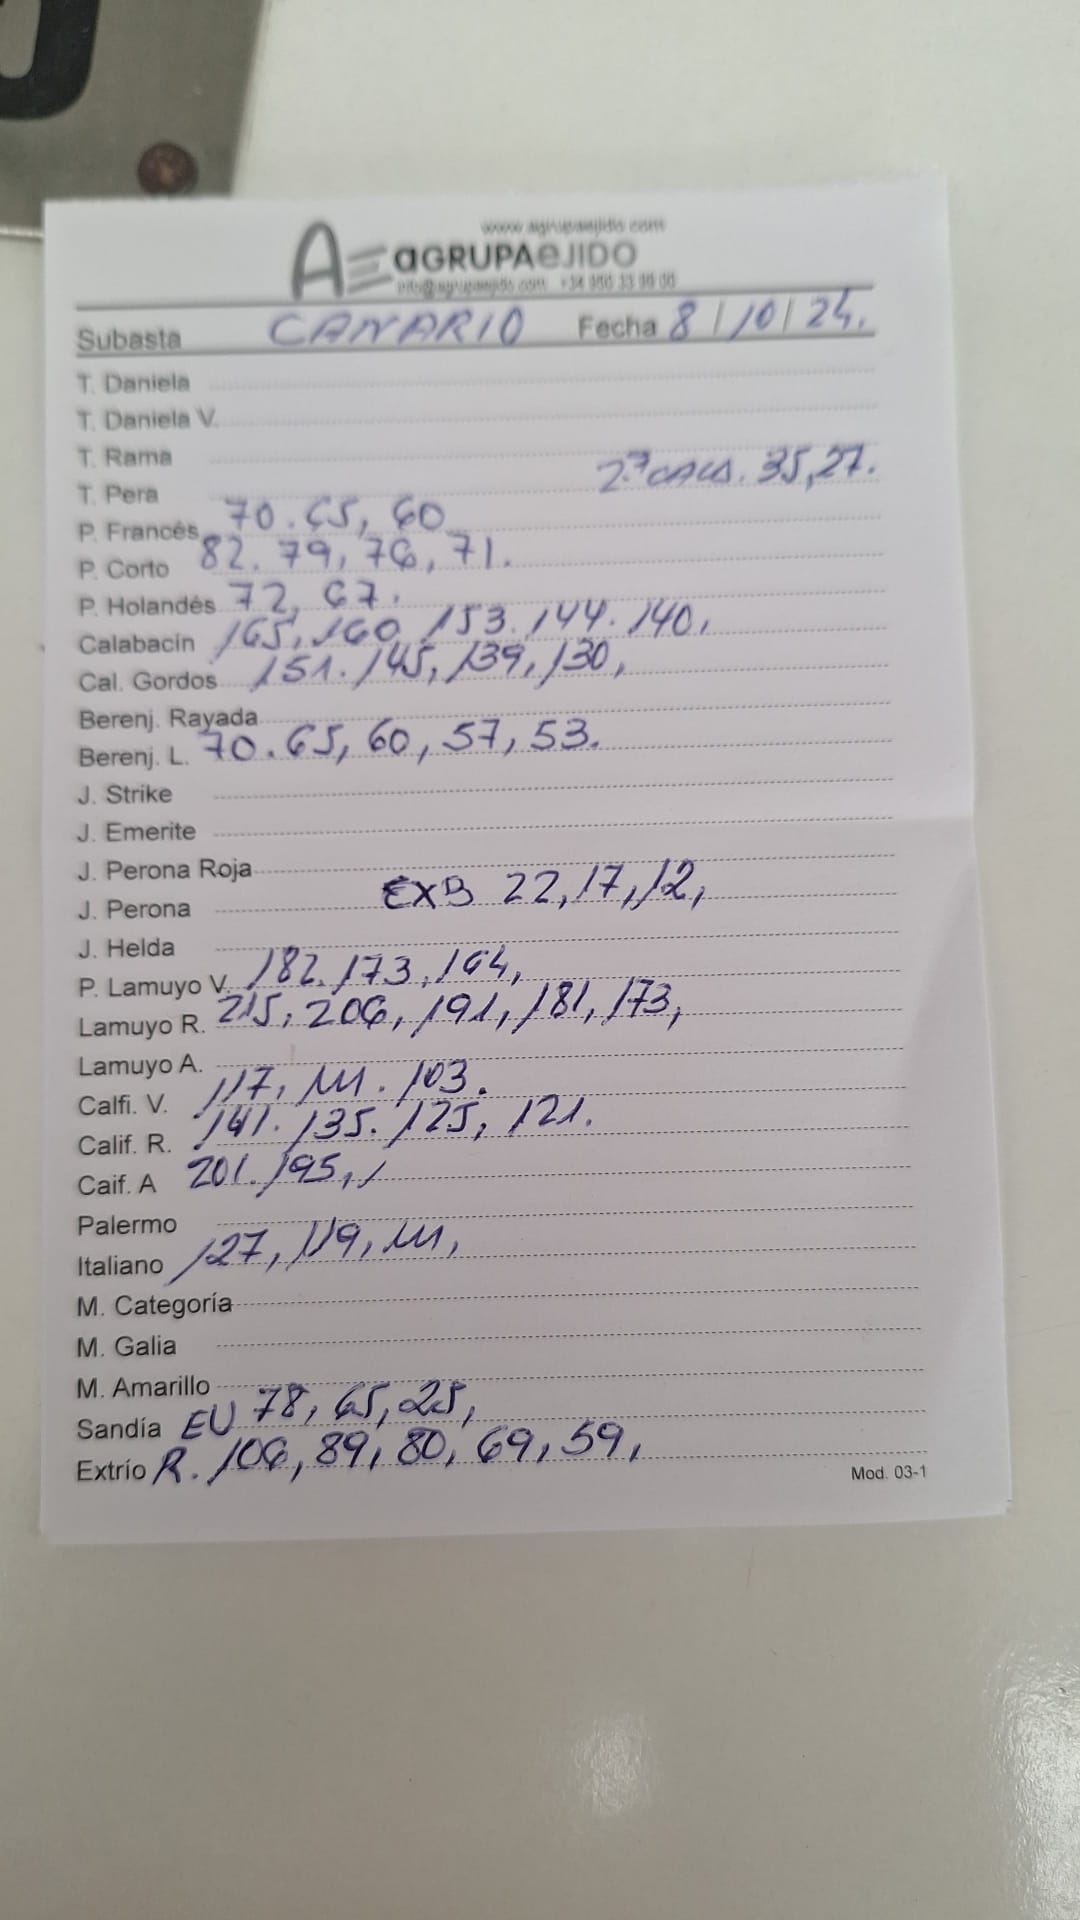 www.agrupaejido.com
AE aGRUPAeJIDO
info@agrupaejido.com +34 950 33 99 00
Subasta CANARIO Fecha 8/10/24.
T. Daniela
T. Daniela V.
T. Rama
T. Pera 2ª CALD. 35,27.
P. Francés 70.65,60
P. Corto 82.79,76,71.
P. Holandés 72,67.
Calabacín 165,160,153.144.140,
Cal. Gordos 151.145,139,130,
Berenj. Rayada
Berenj. L. 70.65,60,57,53.
J. Strike
J. Emerite
J. Perona Roja
J. Perona EXB 22,17,12,
J. Helda
P. Lamuyo V. 182.173,164,
Lamuyo R. 215,206,191,181,173,
Lamuyo A.
Calfi. V. 117,111.103.
Calif. R. 141.135.125,121.
Caif. A 201.195,,
Palermo
Italiano 127,119,111,
M. Categoría
M. Galia
M. Amarillo
Sandía EU 78,65,25,
Extrío R. 106,89,80,69,59,
Mod. 03-1